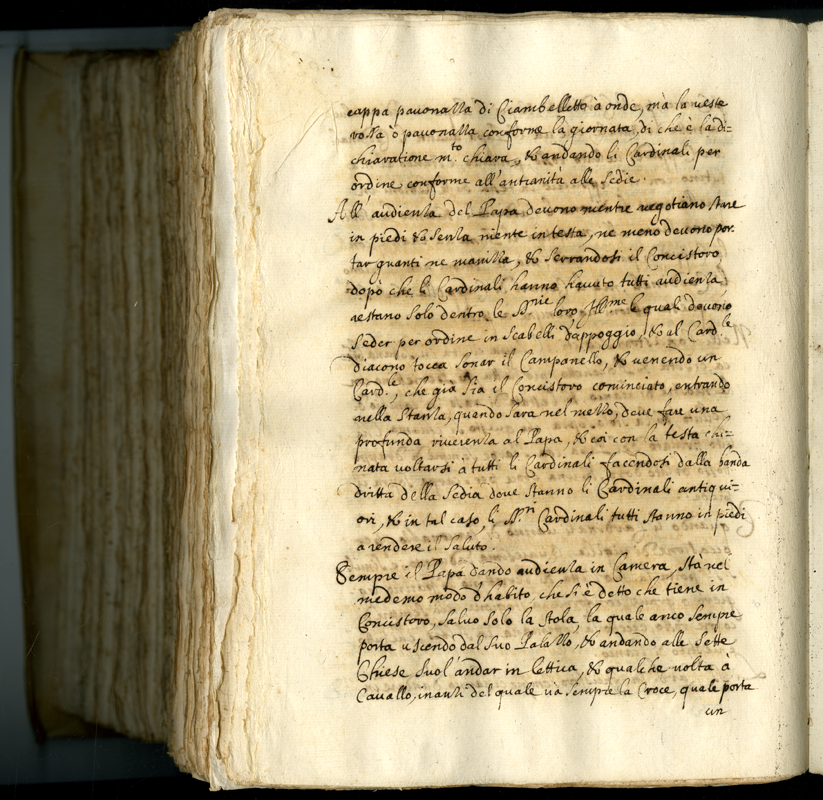 cappa pauonazza di Ciambellotto à onde, mà la ueste
rossa ò pauonazza conforme la giornata, di che è la di=
chiaratione m.to chiara, & andando li Cardinali per
ordine conforme all'antianità alle sedie.
All'audienza del Papa deuono mentre negotiano stare
in piedi & senza niente in testa, ne meno deuono por=
tar guanti ne manizza, & serrandosi il Concistoro,
dopò che li Cardinali hanno hauuto tutti audienza
restano solo dentro le SS.rie loro Ill.me le quali deuono
seder per ordine in scabelli d'appoggio, & al Card.le
diacono tocca sonar il Campanello, & uenendo un
Card.le, che già sia il Concistoro cominciato, entrando
nella stanza, quando sarà nel mezzo, deue fare una
profonda riuerenza al Papa, & così con la testa chi=
nata voltarsi à tutti li Cardinali facendosi dalla banda
diritta della sedia doue stanno li Cardinali antiqui=
ori, & in tal caso, li SS.ri Cardinali tutti stanno in piedi
a rendere il saluto.
Sempre il Papa dando audienza in Camera, stà nel
medemo modo d'habito, che si è detto che tiene in
Concistoro, saluo solo la stola, la quale anco sempre
porta uscendo dal suo Palazzo, & andando alle sette
Chiese suol'andar in lettica, & qualche volta à
Cauallo, inanzi del quale uà sempre la Croce, quale porta
un